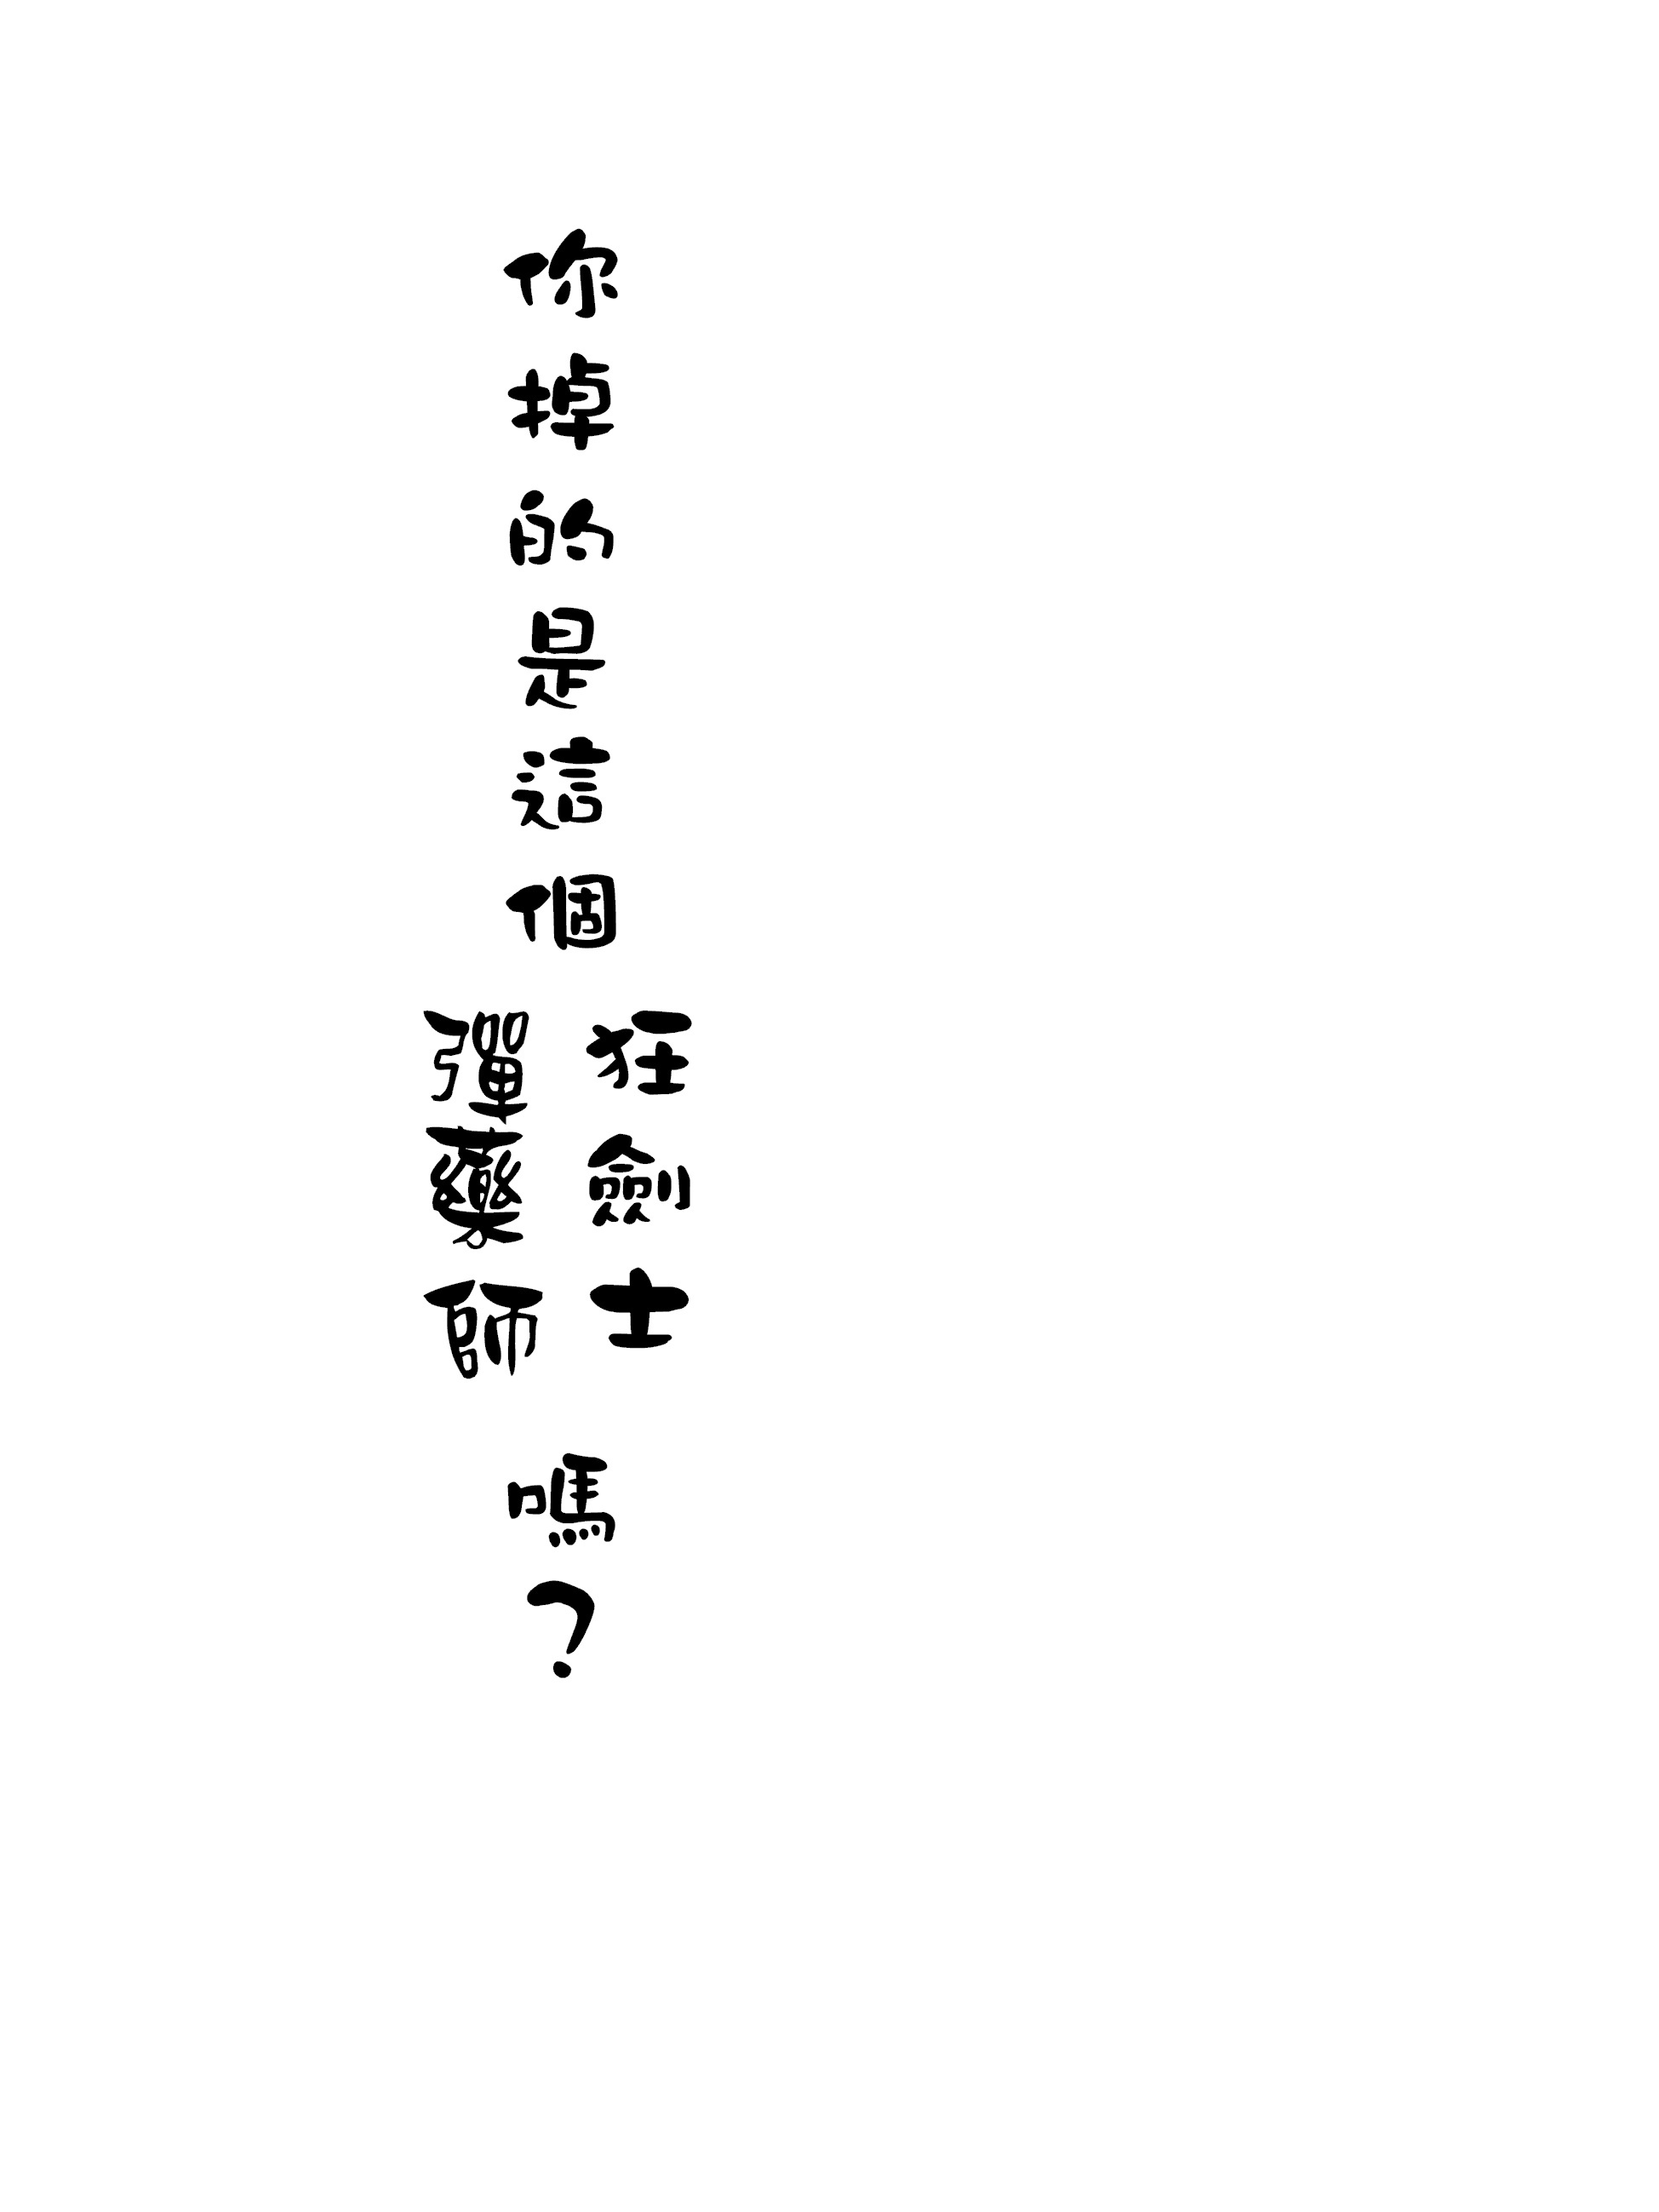 你掉的是這個
狂劍士
彈藥師
嗎？